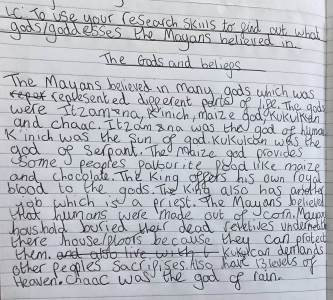 LC: To use your research skills to find out what
gods/goddesses the Mayans believed in.
The Gods and beliefs
The Mayans believed in many gods which was
represented different parts of life. The gods
were Itzamana, K'inich, maize god, Kukulkan
and Chaac. Itzamana was the god of human
K'inich was the sun of god. Kukulcan was the
god of serpant. The maize god provides
some peoples favourite food like maize
and chocolate. The King offers his own royal
blood to the gods. The King also has another
job which is a priest. The Mayans believed
that humans were made out of corn. Mayan
houshold buried their dead reletives underneath
there house/floors because they can protect
them. and also live with t Kukulcan demands
other peoples sacrifises. Also have 13 levels of
Heaven. Chaac was the god of rain.